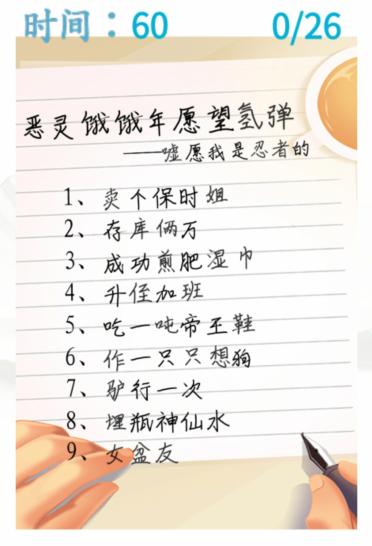 时间：60
0/26
恶灵饿饿年愿望氢弹
——嘘愿我是忍者的
1、卖个保时姐
2、存库俩万
3、成功煎肥湿巾
4、升侄加班
5、吃一吨帝王鞋
6、作一只只想狗
7、驴行一次
8、埋瓶神仙水
9、女盆友